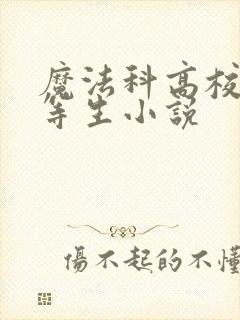 魔法科高校
等生小説
傷不起的不懂